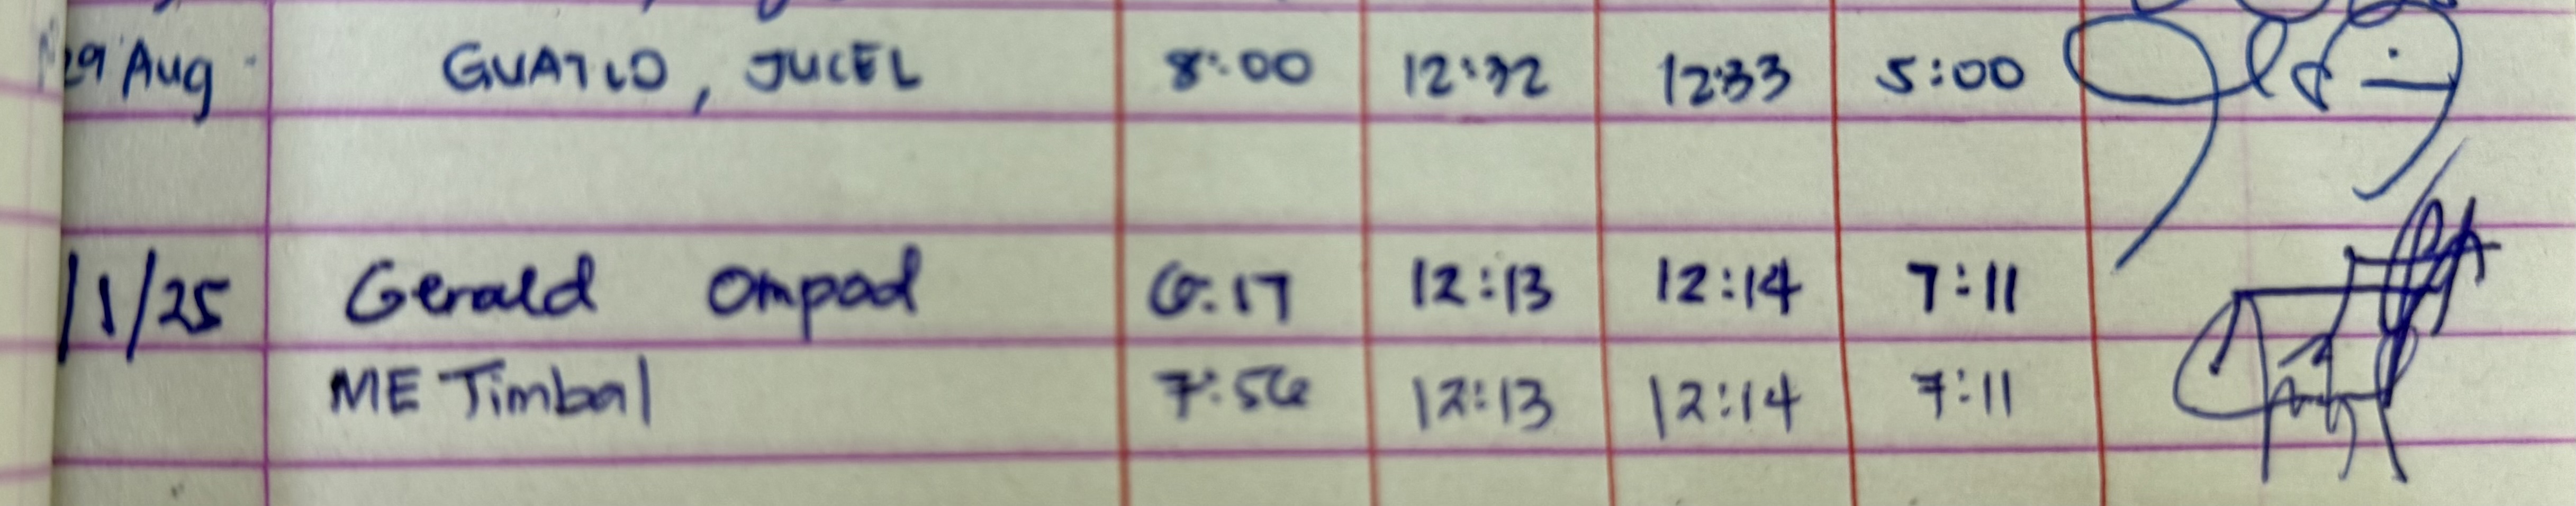 29 Aug GUATLO, JUCEL 8:00 12:32 12:33 5:00
/1/25 Gerald Ompad 6:17 12:13 12:14 7:11
ME Timbal 7:56 12:13 12:14 7:11